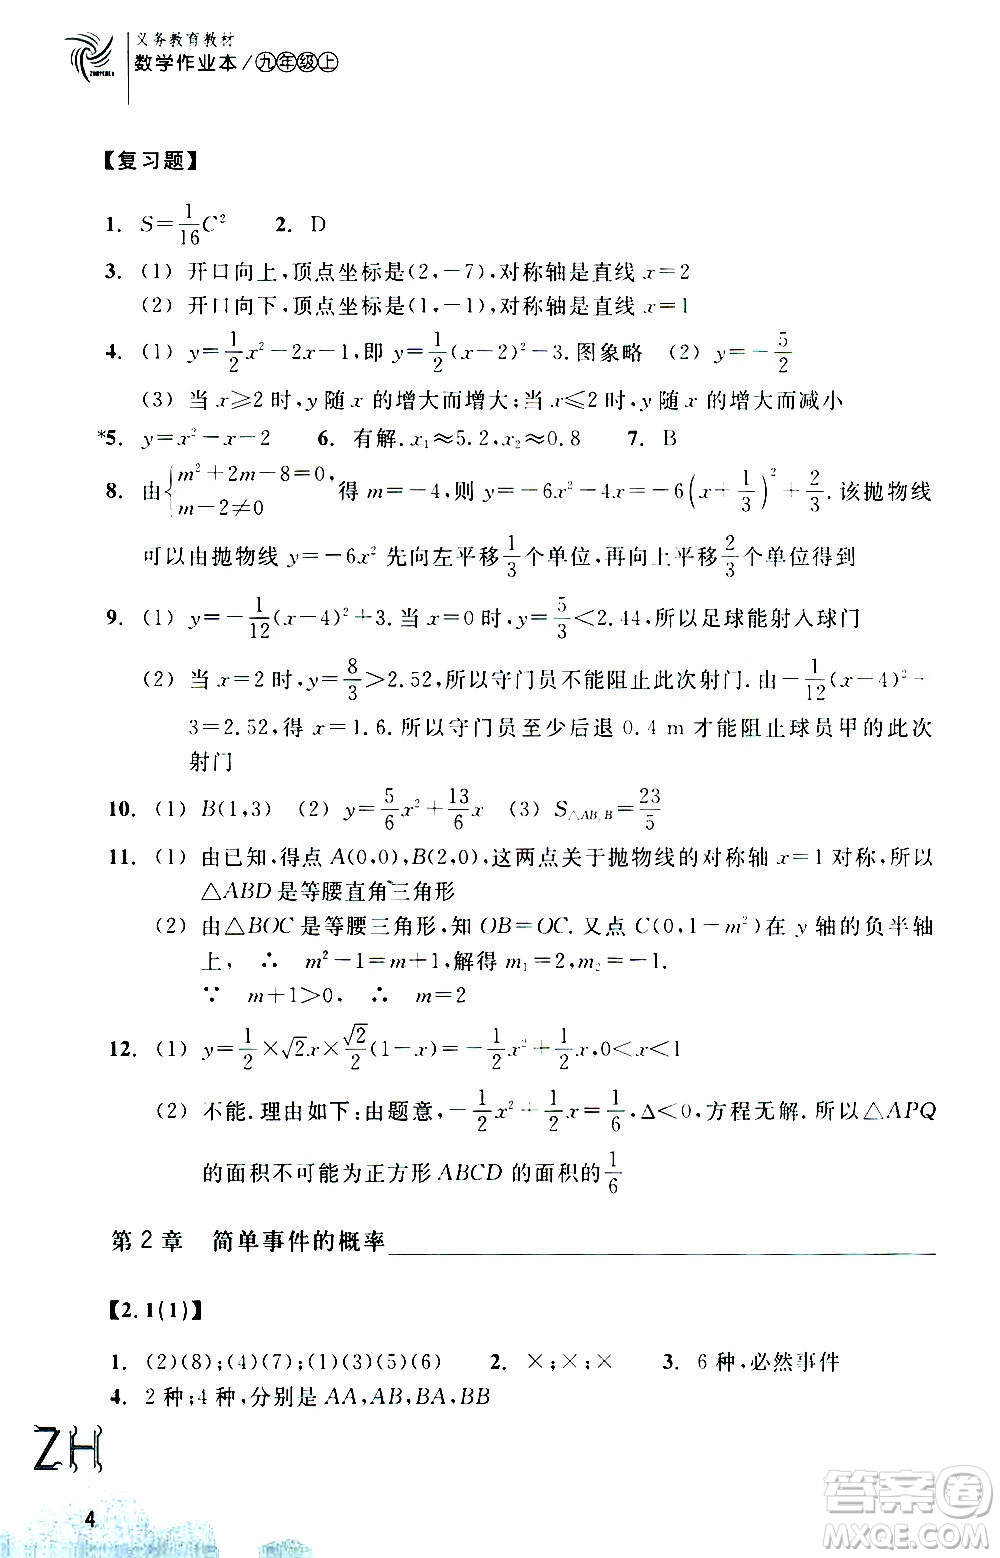 义务教育教材
数学作业本/九年级上
【复习题】
1. S=1/16C² 2. D
3. (1) 开口向上,顶点坐标是(2,-7),对称轴是直线 x=2
(2) 开口向下,顶点坐标是(1,-1),对称轴是直线 x=1
4. (1) y=1/2x²-2x-1,即 y=1/2(x-2)²-3.图象略 (2) y=-5/2
(3) 当 x≥2 时,y 随 x 的增大而增大;当 x≤2 时,y 随 x 的增大而减小
*5. y=x²-x-2 6. 有解. x₁≈5.2,x₂≈0.8 7. B
8. 由{m²+2m-8=0, m-2≠0 得 m=-4,则 y=-6x²-4x=-6(x+1/3)²+2/3.该抛物线
可以由抛物线 y=-6x² 先向左平移1/3个单位,再向上平移2/3个单位得到
9. (1) y=-1/12(x-4)²+3.当 x=0 时,y=5/3<2.44,所以足球能射入球门
(2) 当 x=2 时,y=8/3>2.52,所以守门员不能阻止此次射门.由-1/12(x-4)²-
3=2.52,得 x=1.6.所以守门员至少后退 0.4 m 才能阻止球员甲的此次
射门
10. (1) B(1,3) (2) y=5/6x²+13/6x (3) S△AB₁B=23/5
11. (1) 由已知,得点 A(0,0),B(2,0),这两点关于抛物线的对称轴 x=1 对称,所以
△ABD 是等腰直角三角形
(2) 由△BOC 是等腰三角形,知 OB=OC. 又点 C(0,1-m²)在 y 轴的负半轴
上, ∴ m²-1=m+1,解得 m₁=2,m₂=-1.
∵ m+1>0, ∴ m=2
12. (1) y=1/2×√2x×√2/2(1-x)=-1/2x²+1/2x,0<x<1
(2) 不能.理由如下:由题意,-1/2x²+1/2x=1/6,Δ<0,方程无解.所以△APQ
的面积不可能为正方形 ABCD 的面积的1/6
第 2 章 简单事件的概率
【2.1(1)】
1. (2)(8);(4)(7);(1)(3)(5)(6) 2. ×;×;× 3. 6 种,必然事件
4. 2 种;4 种,分别是 AA,AB,BA,BB
ZH
4
答案圈
MXQE.COM